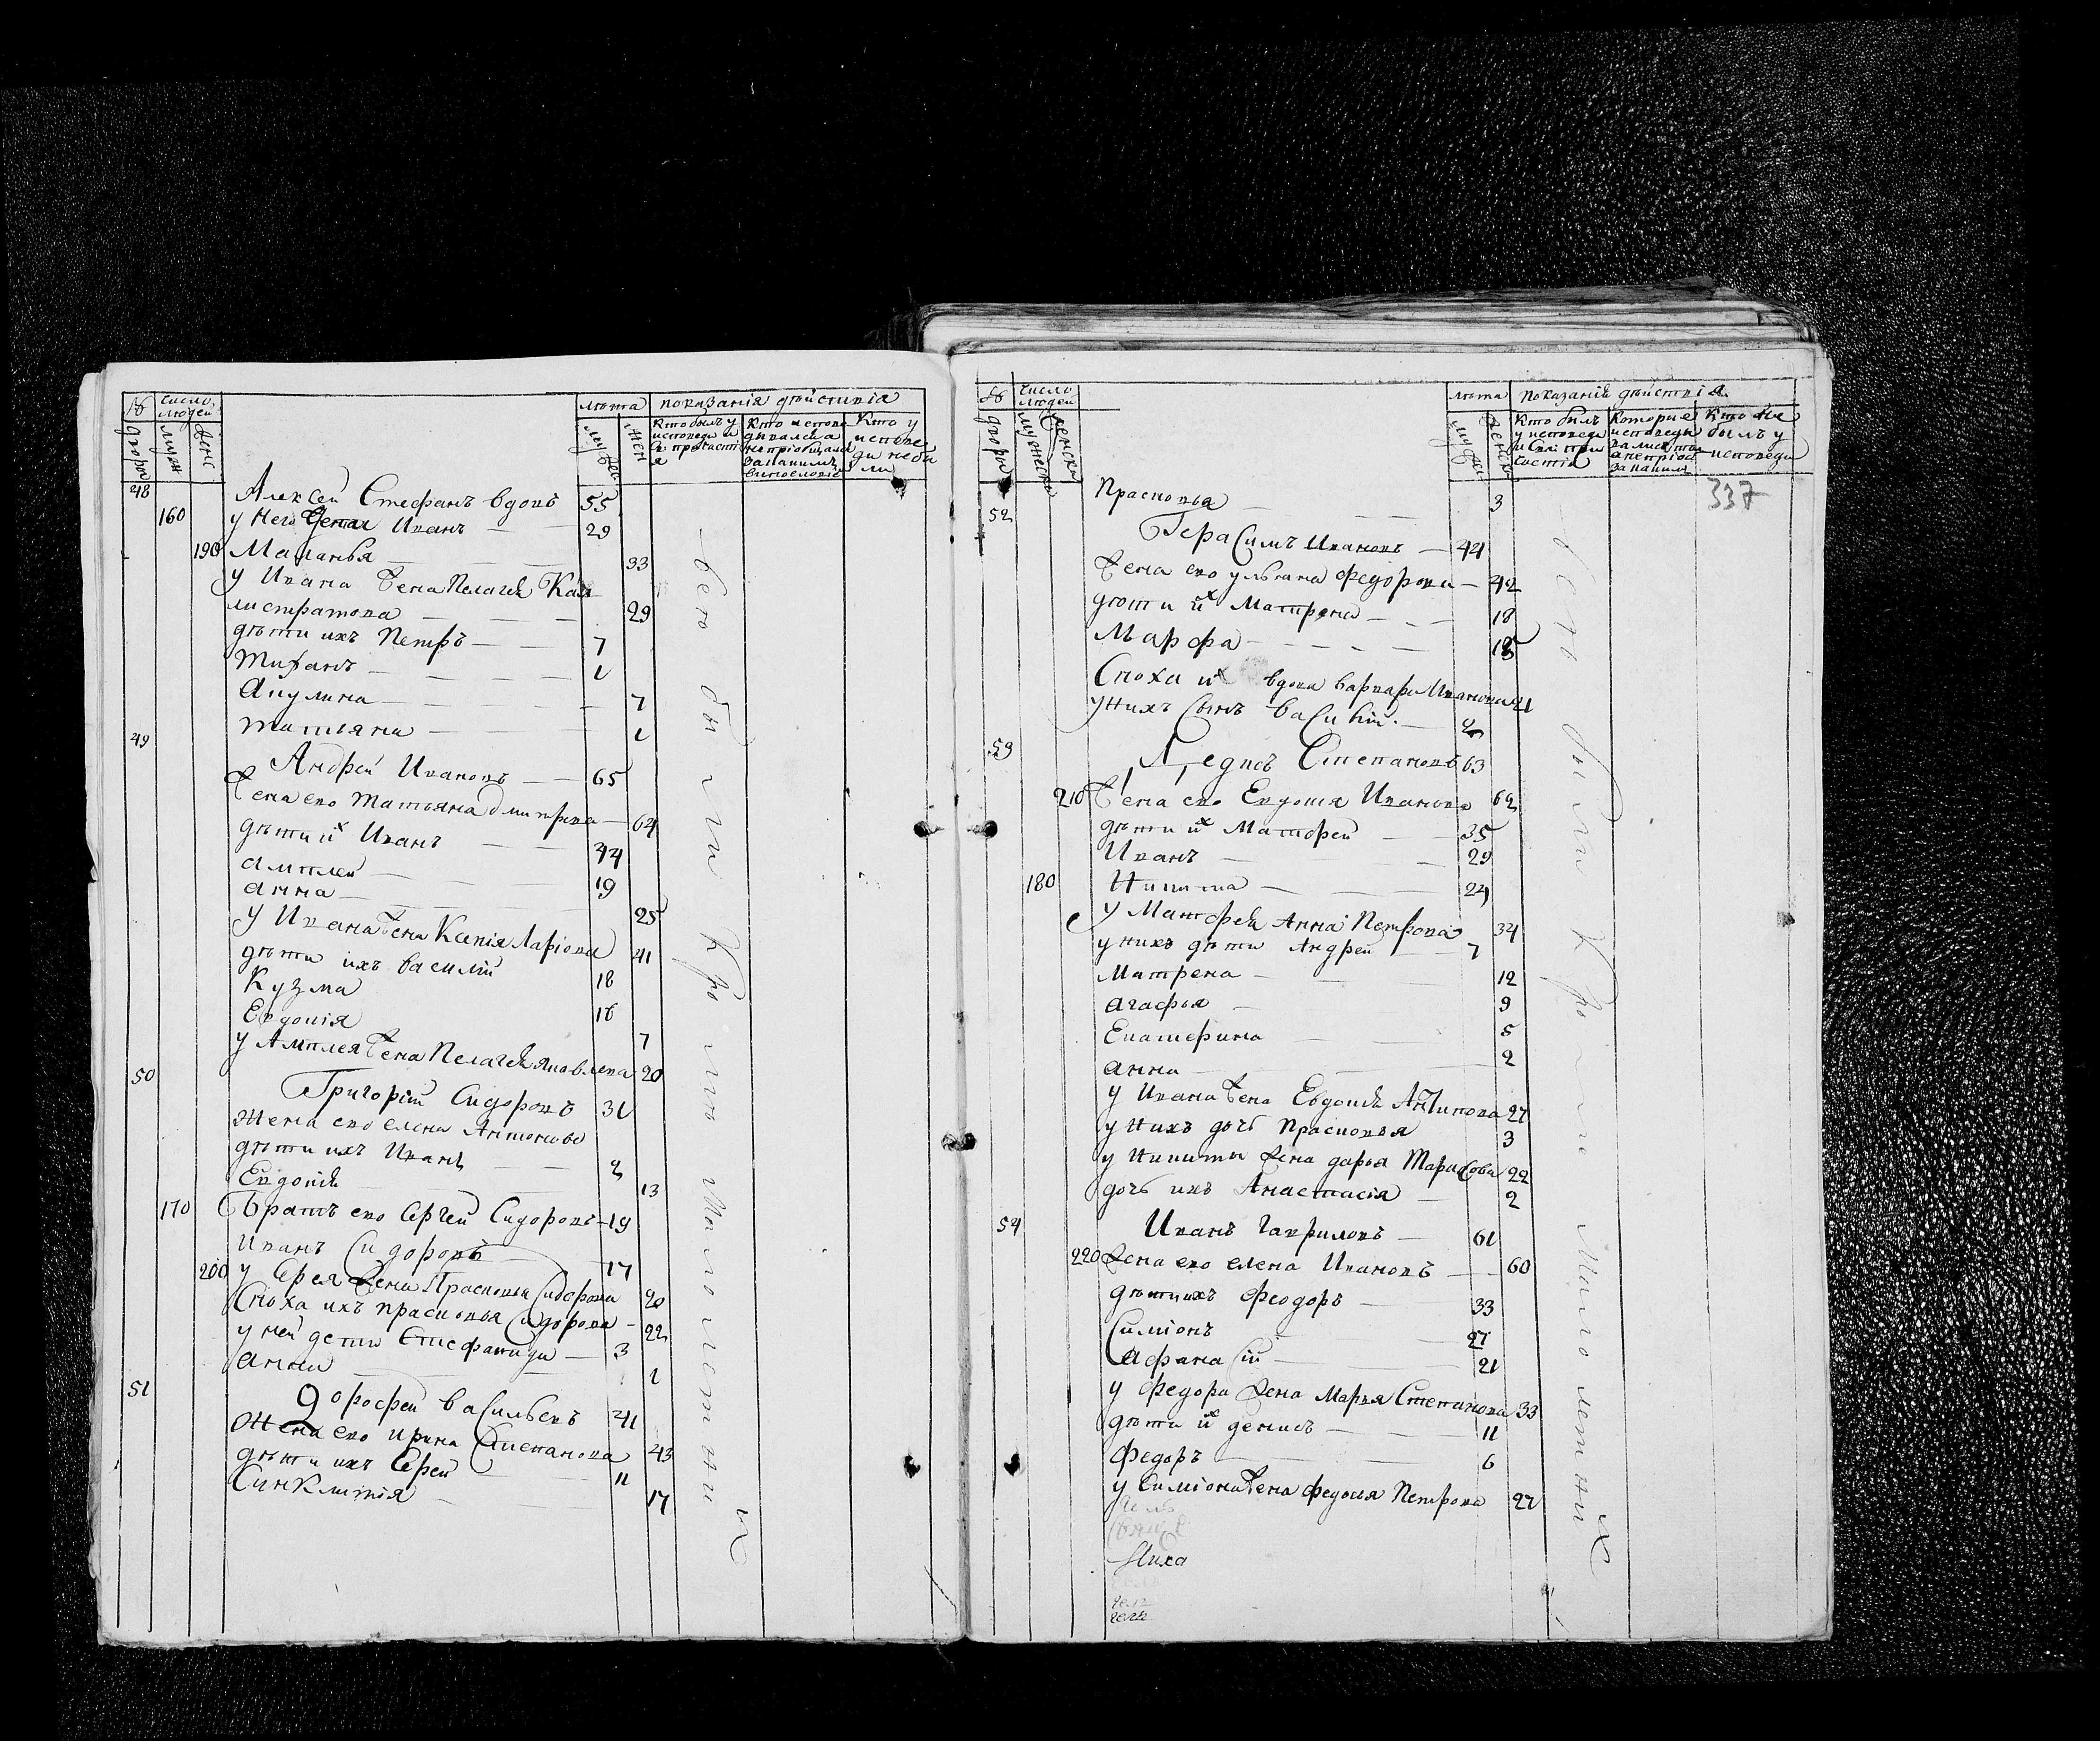 № число людей лѣта показанія дѣйствія
дворы мужч женс мужеск жен
Кто былъ у исповеди и св: причастія
Кто исповедывался а непріобщался за каким винословіе
Кто у исповеди не были
48 Алексей Стефанъ вдовъ 55
160 у него дети Иванъ 29
190 Маланья 33
у Ивана жена Пелагея Кал
листратова 29
дѣти ихъ Петръ 7
1
Акулина 7
Татьяна 1
49 Андрей Ивановъ 65
жена ево Татьяна дмитрева 64
дѣти их Иванъ 44
амплей 19
анна 25
у Ивана жена Ксенія Ларіова 41
дѣти ихъ василий 18
Кузма 16
Евдокія 7
у Амплея жена Пелагея Яковлева 20
50 Григорій Сидоровъ 31
жена ево елена Антонова
дѣти ихъ Иванъ 2
Евдокія 13
170 братъ ево Сергей Сидоровъ 19
Иванъ Сидоровъ 17
200 у Сергея жена Прасковья Сидорова 20
Сноха ихъ прасковья Сидорова 22
у ней дети Стефанида 3
анна 1
51 дорофей васильевъ 41
жена ево ирина Степанова 43
дѣти ихъ Сергей 11
Синклитія 17
всю были Кро мѣ Мало летних
№ число людей лѣта показанія дѣйствія
дворы мужеска женска мужеск женска
Кто былъ у исповеди и святаго причастія
Которые исповедывались токмо а непріобщ за каким
Кто не былъ у исповеди
337
Прасковья 3
52 Герасимъ Ивановъ 44
жена ево ульяна федорова 42
дѣти их Матрена 18
Марфа 15
Сноха их вдова варвара Иванова 21
у нихъ сынъ василій 2
53 Степановъ 63
210 жена ево Евдокия Иванова 62
дѣти их Матфей 35
Иванъ 29
180 Никита 24
у Матфея Анна Петрова 34
у нихъ дѣти Андрей 7
Матрена 12
агафья 9
Екатерина 5
анна 2
у Ивана жена Евдокия Антипова 27
у нихъ дочь Прасковья 3
у Никиты жена дарья Тарасова 22
дочь ихъ Анастасія 2
54 Иванъ Гавриловъ 61
220 жена ево елена Ивановъ 60
дѣти ихъ Феодоръ 33
Симіонъ 27
Афанасій 21
у федора жена Марья Степанова 33
дѣти их денисъ 11
Федоръ 6
у Симіона жена федосия Петрова 27
Миха
всю были Кро мѣ Мало летних